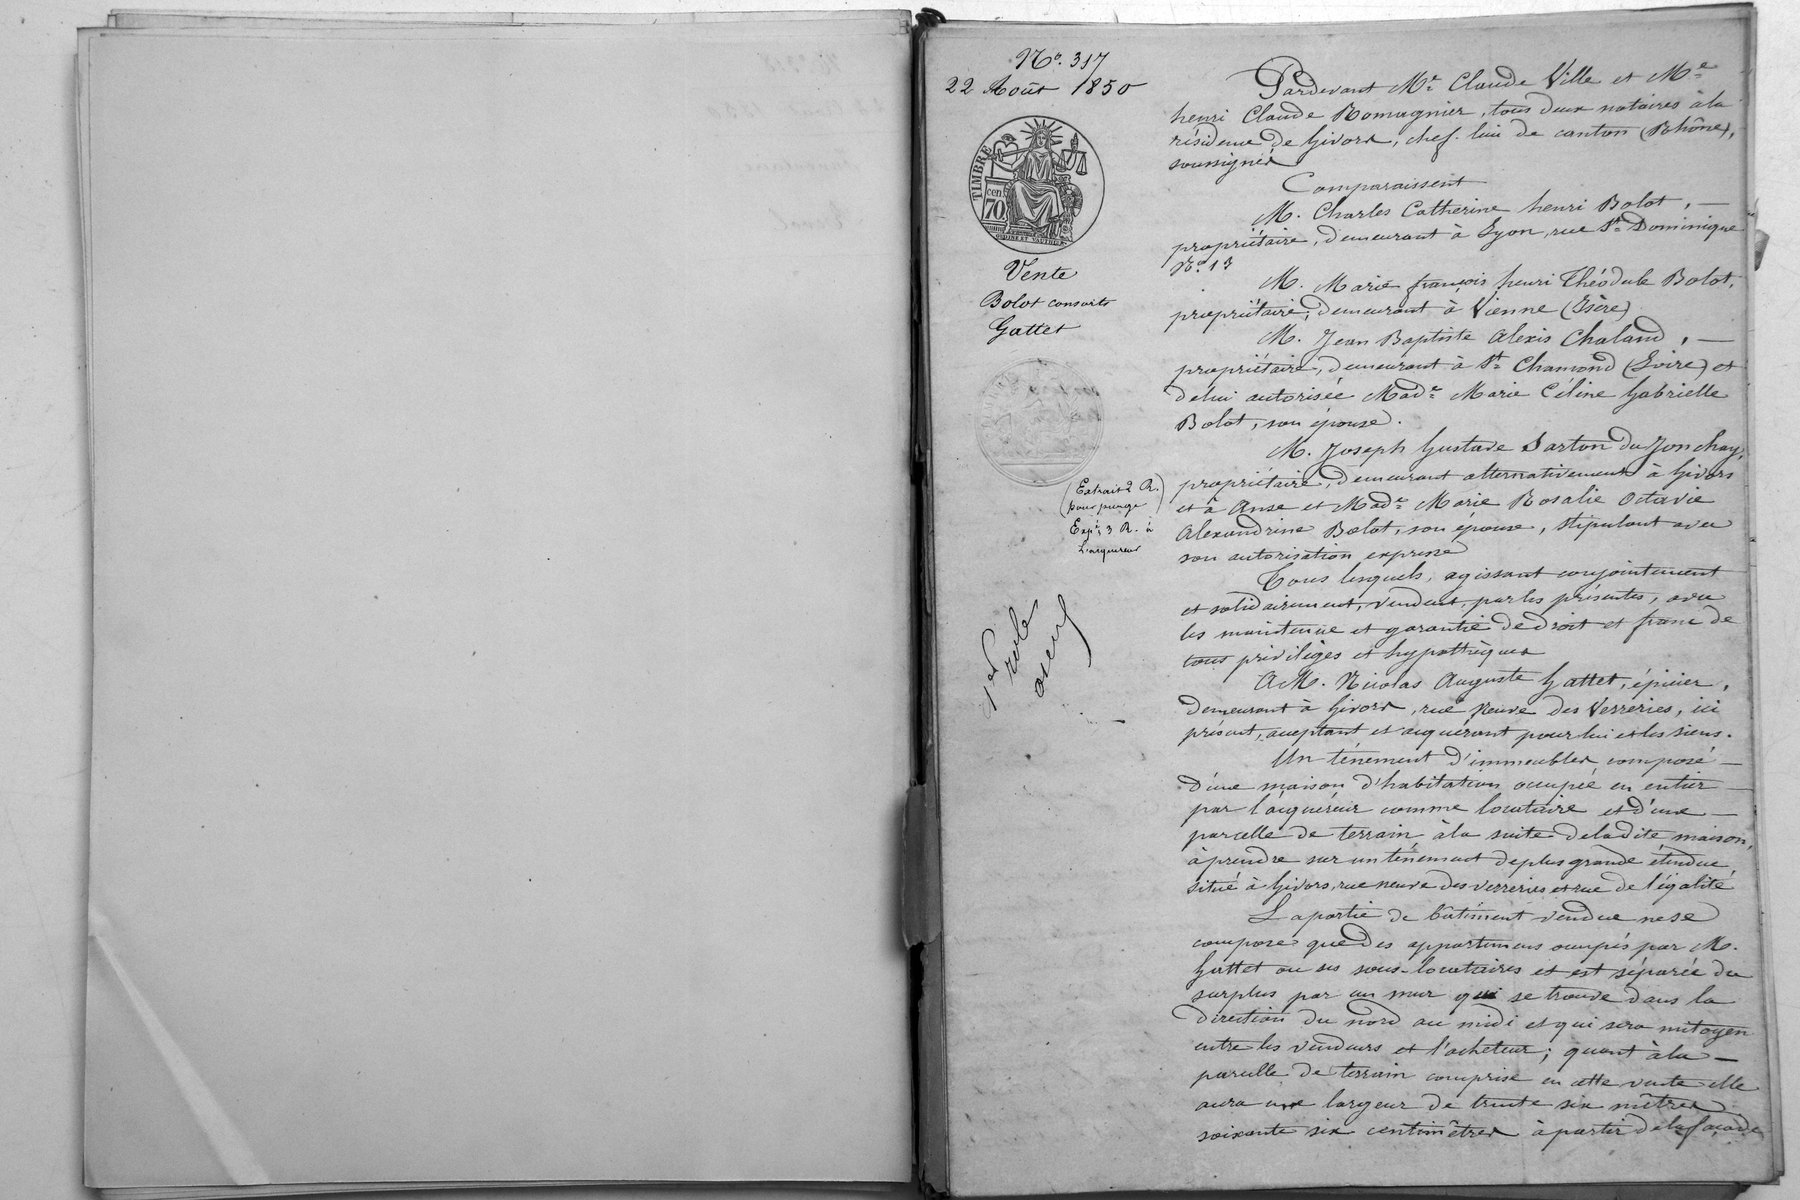 N°. 317
22 Août 1850
TIMBRE
cen.
70
Vente
Bolot consorts
Gattet
(Extrait 2 R.)
(pour purge
Exp.n 3 R. à
l'acquéreur
1er rôle
Pardevant Me Claude Ville et Me
henri Claude Romagnier, tous deux notaires à la
résidence de Givors, chef-lieu de canton (Rhône),
soussignés
Comparaissent
M. Charles Catherine henri Bolot, —
propriétaire, demeurant à Lyon, rue St Dominique
N° 13
M. Marie françois henri Théodule Bolot,
propriétaire, demeurant à Vienne (Isère)
M. Jean Baptiste Alexis Chaland, —
propriétaire, demeurant à St Chamond (Loire) et
de lui autorisée Made Marie Céline Gabrielle
Bolot, son épouse.
M. Joseph Gustave Sarton du Jonchay,
propriétaire, demeurant alternativement à Givors
et à Anse et Made Marie Rosalie Octavie
Alexandrine Bolot, son épouse, stipulant avec
son autorisation expresse
Tous lesquels, agissant conjointement
et solidairement, vendent, par les présentes, avec
les maintenue et garantie de droit et franc de
tous privilèges et hypothèques
A M. Nicolas Auguste Gattet, épicier,
demeurant à Givors, rue Neuve des Verreries, ici
présent, acceptant et acquérant pour lui et les siens.
Un ténement d'immeubles composé —
d'une maison d'habitation occupée en entier —
par l'acquéreur comme locataire et d'une —
parcelle de terrain à la suite de ladite maison,
à prendre sur un ténement de plus grande étendue
situé à Givors, rue neuve des verreries et rue de l'égalité
La partie de bâtiment vendue ne se
compose que des appartemens occupés par M.
Gattet ou ses sous-locataires et est séparée du
surplus par un mur qui se trouve dans la
direction du nord au midi et qui sera mitoyen
entre les vendeurs et l'acheteur; quant à la —
parcelle de terrain comprise en cette vente elle
aura une largeur de trente six mètres
soixante six centimètres à partir de la façade